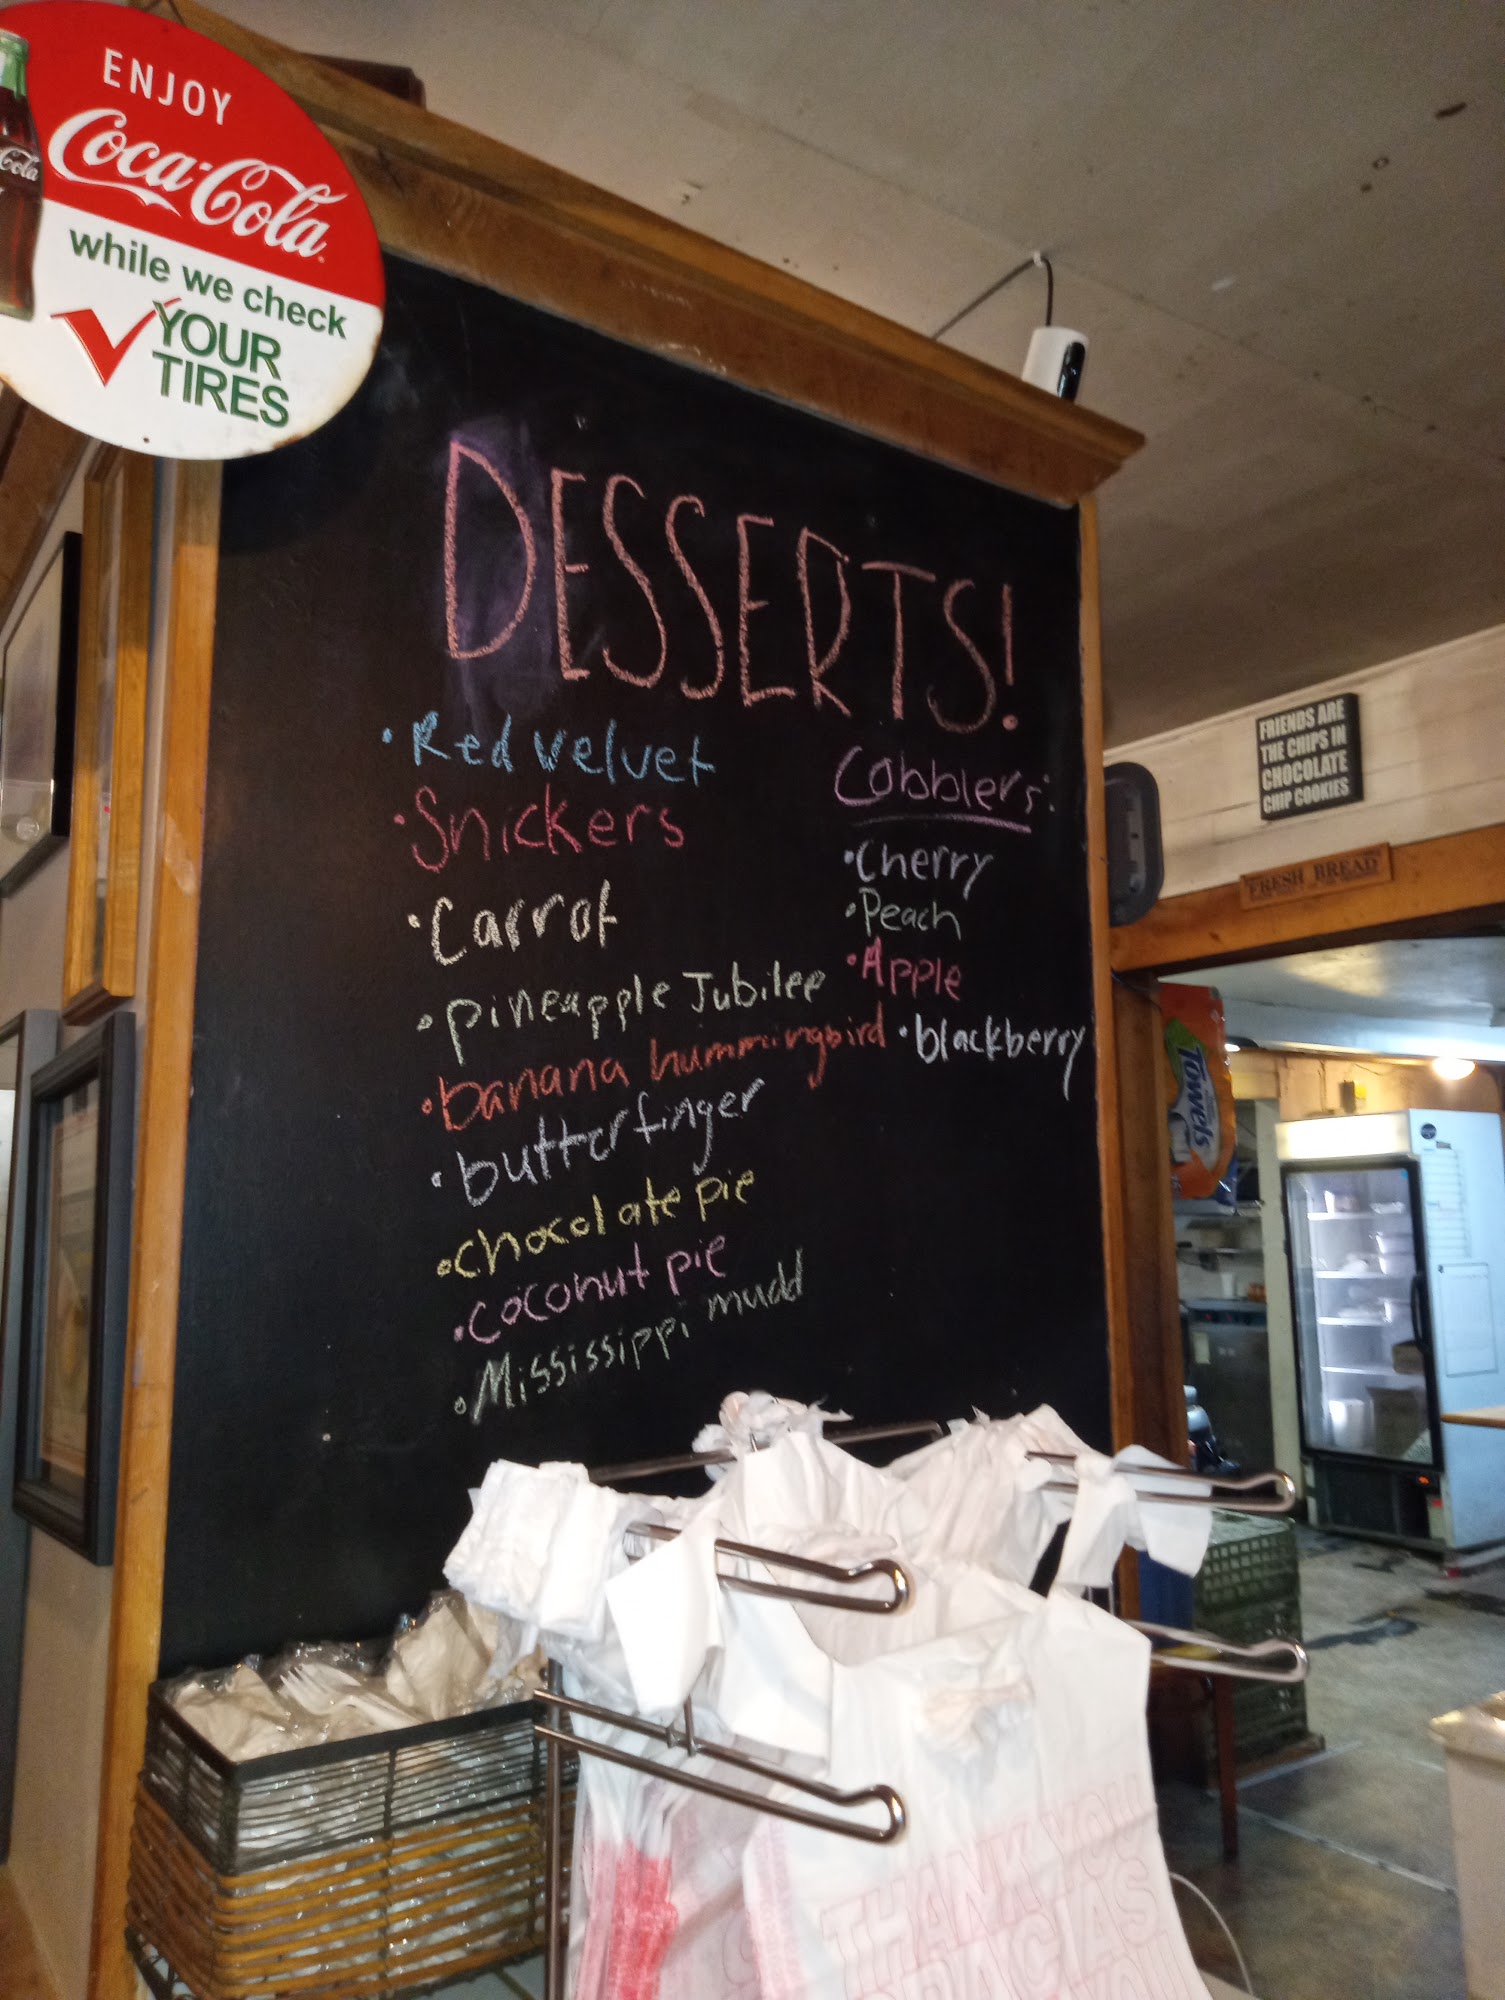 ENJOY
Coca-Cola
Cola
while we check
YOUR
TIRES
DESSERTS!
• Red velvet
• Snickers
• Carrot
• pineapple Jubilee
• banana hummingbird
• butterfinger
• chocolate pie
• coconut pie
• Mississippi mudd
Cobblers:
• Cherry
• Peach
• Apple
• blackberry
FRIENDS ARE
THE CHIPS IN
CHOCOLATE
CHIP COOKIES
FRESH BREAD
Towels
THANK YOU
GRACIAS